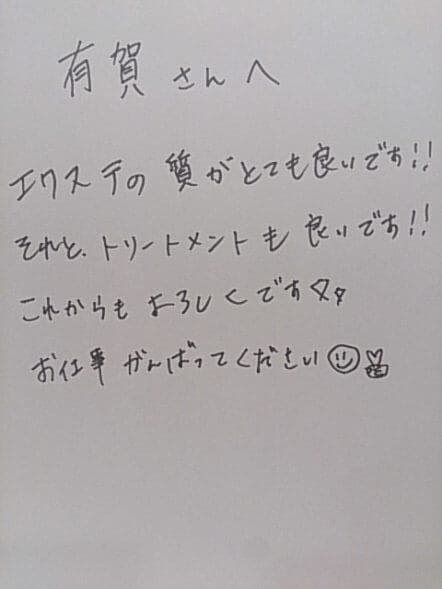 有賀さんへ
エクステの質がとても良いです!!
それと、トリートメントも良いです!!
これからもよろしくです☆☆
お仕事がんばってください☺✌